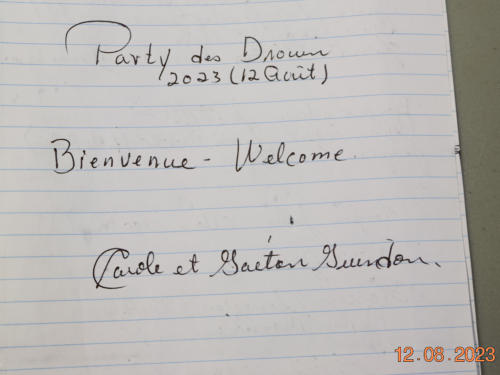 Party des Drouin
2023 (12 Août)
Bienvenue - Welcome
Carole et Gaétan
12.08.2023